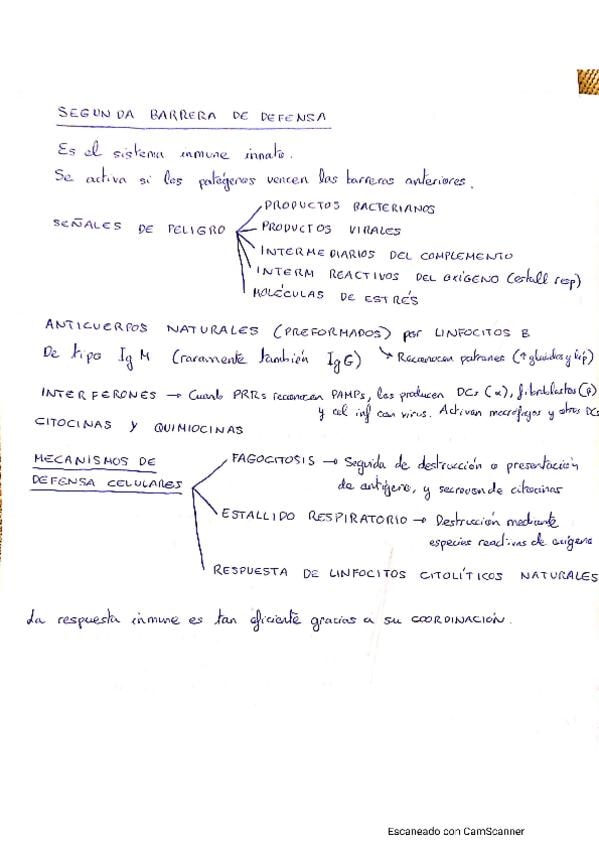 SEGUNDA BARRERA DE DEFENSA
Es el sistema inmune innato.
Se activa si los patógenos vencen las barreras anteriores.
SEÑALES DE PELIGRO
PRODUCTOS BACTERIANOS
PRODUCTOS VIRALES
INTERMEDIARIOS DEL COMPLEMENTO
INTERM REACTIVOS DEL OXÍGENO (estall resp)
MOLÉCULAS DE ESTRÉS
ANTICUERPOS NATURALES (PREFORMADOS) por LINFOCITOS B
De tipo IgM (raramente también IgG) ↘ Reconocen patrones (↑ glúcidos y lip)
INTERFERONES → Cuando PRRs reconocen PAMPs, los producen DCs (α), fibroblastos (β)
y cel inf con virus. Activan macrófagos y otras DCs
CITOCINAS y QUIMIOCINAS
MECANISMOS DE
DEFENSA CELULARES
FAGOCITOSIS → Seguida de destrucción o presentación
de antígeno, y secreción de citocinas
ESTALLIDO RESPIRATORIO → Destrucción mediante
especies reactivas de oxígeno
RESPUESTA DE LINFOCITOS CITOLÍTICOS NATURALES
La respuesta inmune es tan eficiente gracias a su COORDINACIÓN.
Escaneado con CamScanner